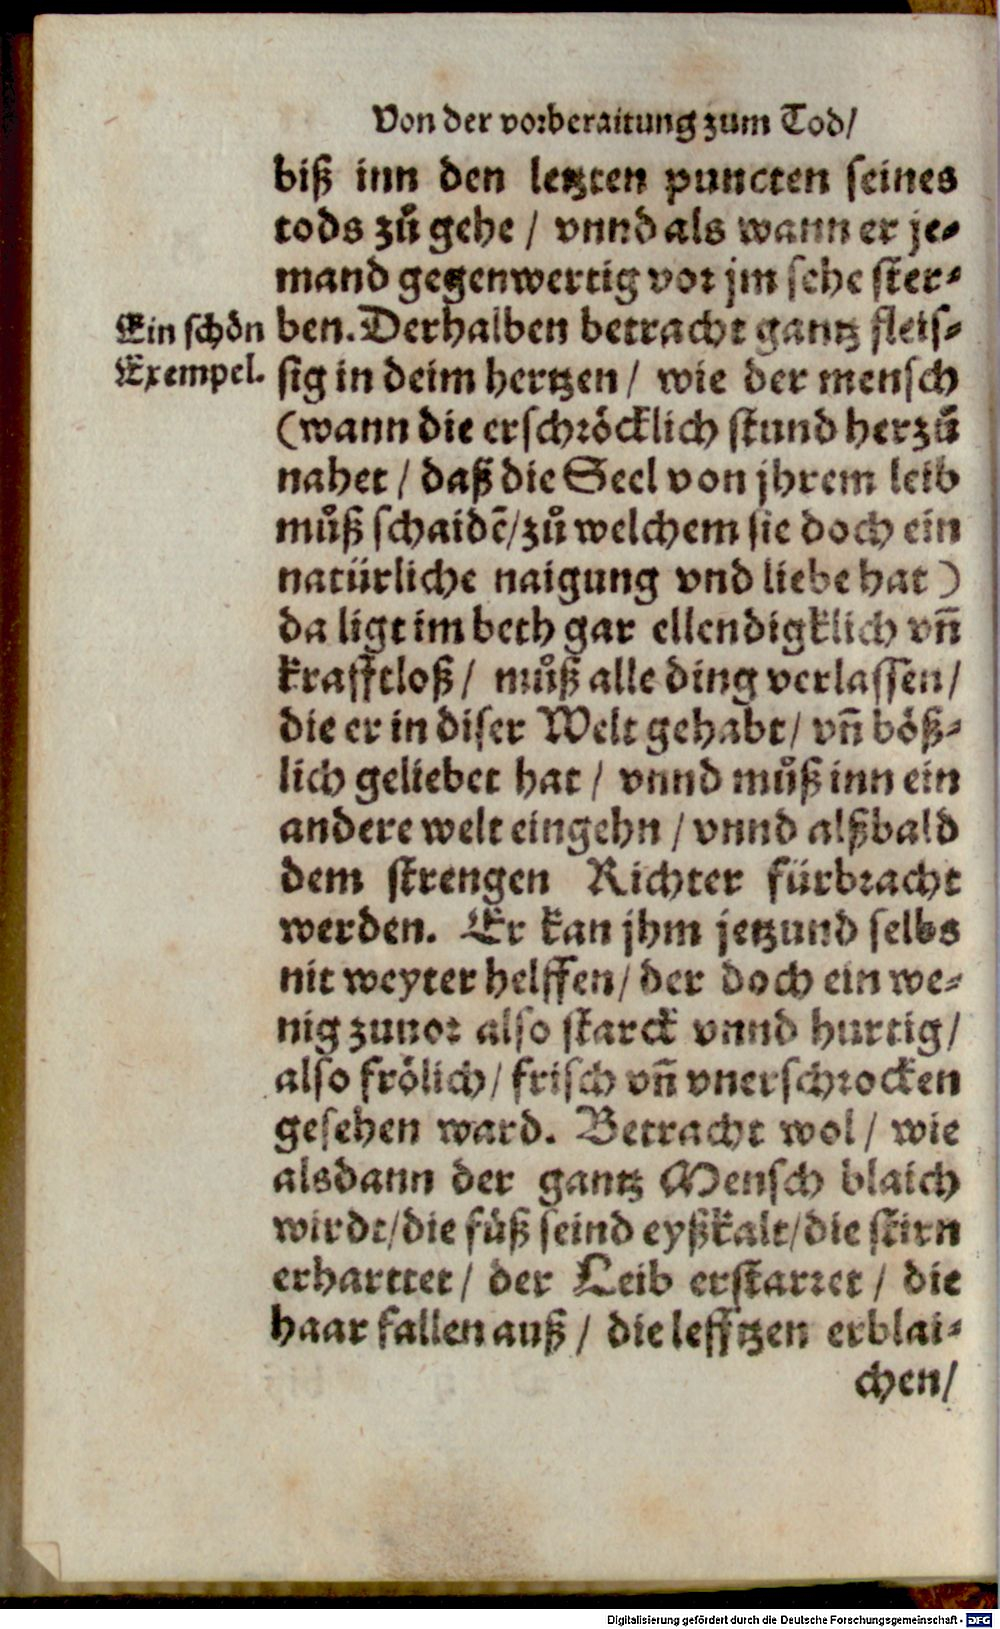 Von der vorberaitung zum Tod/
biß inn den letzten puncten seines
tods zů gehe / vnnd als wann er je-
mand gegenwertig vor jm sehe ster-
Ein schön
Exempel.
ben. Derhalben betracht gantz fleis-
sig in deim hertzen / wie der mensch
(wann die erschröcklich stund herzů
nahet / daß die Seel von jhrem leib
můß schaidē/zů welchem sie doch ein
natürliche naigung vnd liebe hat)
da ligt im beth gar ellendigklich vñ
krafftloß / můß alle ding verlassen /
die er in diser Welt gehabt / vñ böß-
lich geliebet hat / vnnd můß inn ein
andere welt eingehn / vnnd alßbald
dem strengen Richter fürbracht
werden. Er kan jhm jetzund selbs
nit weyter helffen / der doch ein we-
nig zuuor also starck vnnd hurtig /
also frölich / frisch vñ vnerschrocken
gesehen ward. Betracht wol / wie
alsdann der gantz Mensch blaich
wirdt/die füß seind eyßkalt/die stirn
erharttet / der Leib erstarret / die
haar fallen auß / die lefftzen erblai-
chen/
Digitalisierung gefördert durch die Deutsche Forschungsgemeinschaft - DFG